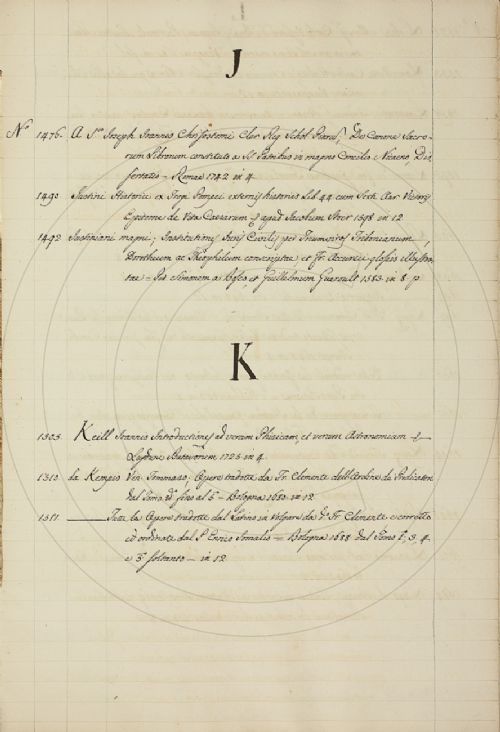 J
No 1476. A Sto Joseph Joannes Chrisostomi Cler. Reg. Schol. Piarum, De Canone Sacro-
rum Librorum constituto a SS. Patribus in magno Concilio Nicaeno, Dis
sertatio - Romae 1742 in 4
1490 Justini Historia ex Trogi Pompei externis historiis Lib. 44 cum Sexti Aur. Victoris
Epitome de Vita Caesarum apud Jacobum Stoer 1598 in 12
1492 Justiniani magni; Institutiones Juris Civilis per Tribonianum,
Dorotheum ac Theophilum conscriptae, et Fr. Accursii glossis illustra
tae - Simonem a Bosco, et Guillelmum Gueroult 1553 in 8
K
1303 Keill Joannis Introductiones ad veram Phisicam, et veram Astronomiam
Lugduni Batavorum 1725 in 4.
1310 da Kempis Ven. Tommaso; Opere tradotte da Fr. Clemente dell'Ordine de Predicatori
dal Tomo 2o fino al 5o - Bologna 1680 in 12
1311 Tutte le Opere tradotte dal Latino in Volgare da Fr. Clemente e corrette
ed ordinate dal P. Enrico = Bologna 1688 dal Tomo 1o, 3, 4.
e 5o soltanto - in 12